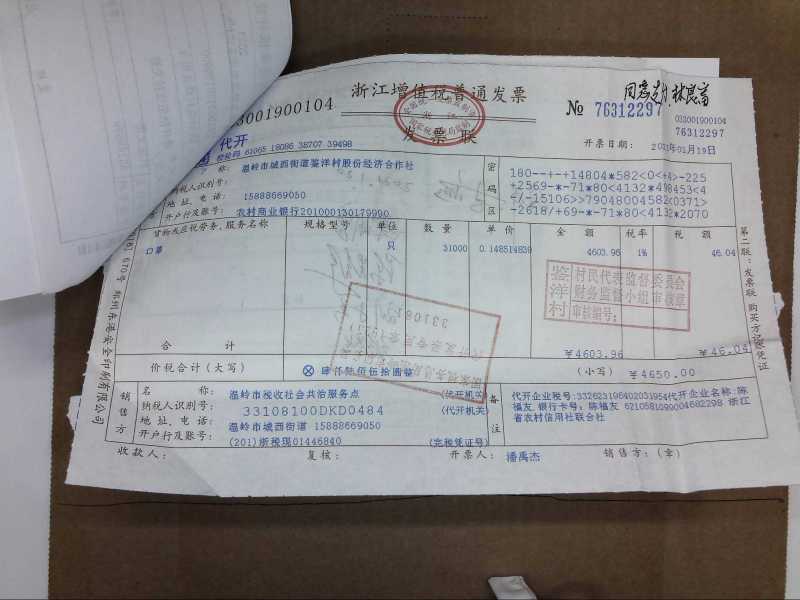 同意支付 林良富
浙江增值税普通发票
发票联
033001900104
№ 76312297
033001900104
76312297
代开
校验码 61065 18086 38707 39498
开票日期: 2021年01月19日
称: 温岭市城西街道鉴洋村股份经济合作社
纳税人识别号:
地 址、电 话: 15888669050
开户行及账号: 农村商业银行201000130179990
密码区
180--+-+14804*582<0<+4>-225
+2569-*-71*80<4132*498453<4
-/-15106>>79048004582<0371>
-2618/+69-*-71*80<4132*2070
货物或应税劳务、服务名称 规格型号 单位 数量 单价 金额 税率 税额
口罩 只 31000 0.148514839 4603.96 1% 46.04
鉴洋村 村民代表监督委员会
财务监督小组审核章
审核编号:
合计 ￥4603.96 ￥46.04
价税合计(大写) ⊗ 肆仟陆佰伍拾圆整 (小写) ￥4650.00
销售方
名 称: 温岭市税收社会共治服务点 (代开机关)
纳税人识别号: 33108100DKD0484 (代开机关)
地 址、电 话: 温岭市城西街道 15888669050
开户行及账号: (201)浙税现01446840 (完税凭证号)
备注
代开企业税号:332623196402031954代开企业名称:陈
福友, 银行卡号: 陈福友 6210581090004682298 浙江
省农村信用社联合社
收款人: 复核: 开票人: 潘禹杰 销售方: (章)
第二联: 发票联 购买方记账凭证
670号 郑州东港安全印刷有限公司